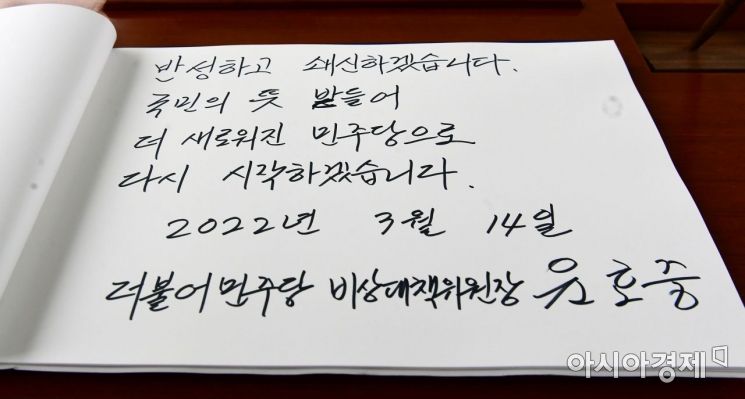 반성하고 쇄신하겠습니다.
국민의 뜻 받들어
더 새로워진 민주당으로
다시 시작하겠습니다.
2022년 3월 14일
더불어민주당 비상대책위원장 윤호중
아시아경제